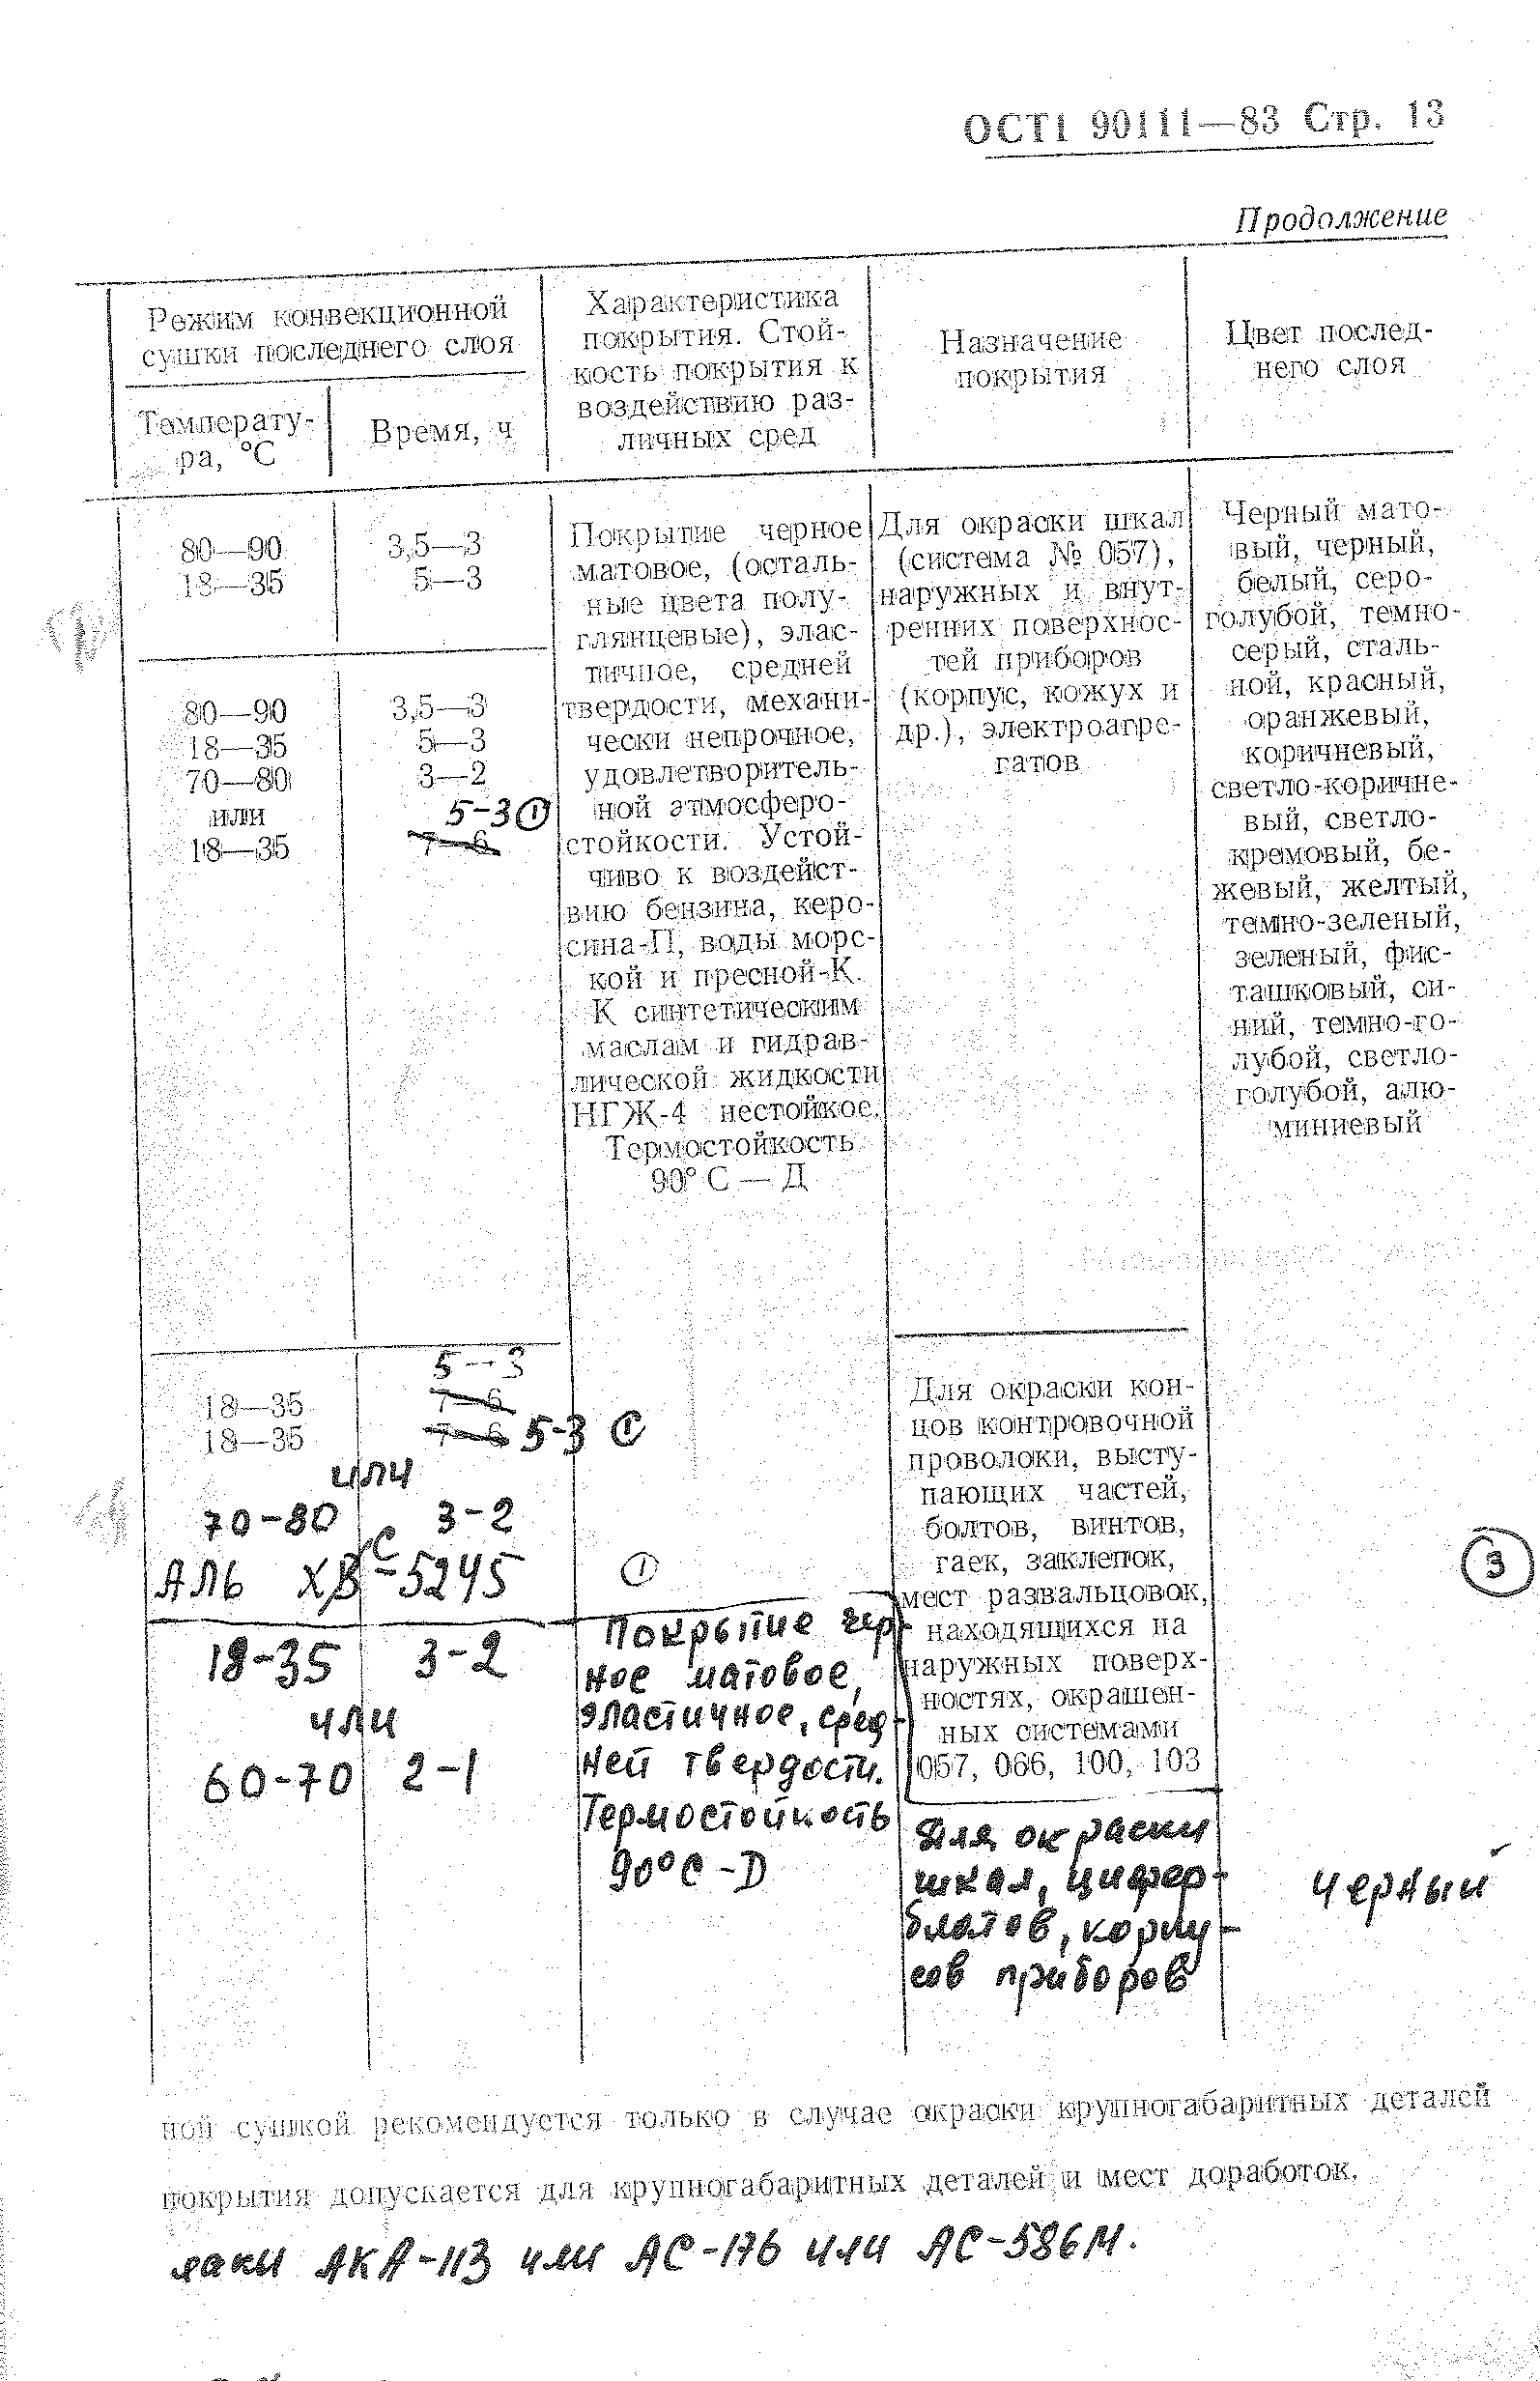 ОСТ1 90111—83 Стр. 13
Продолжение
Режим конвекционной
сушки последнего слоя
Температу-
ра, °С
Время, ч
Характеристика
покрытия. Стой-
кость покрытия к
воздействию раз-
личных сред
Назначение
покрытия
Цвет послед-
него слоя
80—90 3,5—3
18—35 5—3
80—90 3,5—3
18—35 5—3
70—80 3—2
или 5-3 ①
18—35 7—6
Покрытие черное
матовое, (осталь-
ные цвета полу-
глянцевые), элас-
тичное, средней
твердости, механи-
чески непрочное,
удовлетворитель-
ной атмосферо-
стойкости. Устой-
чиво к воздейст-
вию бензина, керо-
сина-П, воды морс-
кой и пресной-К.
К синтетическим
маслам и гидрав-
лической жидкости
НГЖ-4 нестойкое.
Термостойкость
90° С — Д
Для окраски шкал
(система № 057),
наружных и внут-
ренних поверхнос-
тей приборов
(корпус, кожух и
др.), электроагре-
гатов
Черный мато-
вый, черный,
белый, серо-
голубой, темно-
серый, сталь-
ной, красный,
оранжевый,
коричневый,
светло-коричне-
вый, светло-
кремовый, бе-
жевый, желтый,
темно-зеленый,
зеленый, фис-
ташковый, си-
ний, темно-го-
лубой, светло-
голубой, алю-
миниевый
5—3
18—35 7—6
18—35 7—6 5-3 ①
или
70-80 3-2
ХВС-5245
18-35 3-2
или
60-70 2-1
①
Покрытие чер-
ное матовое,
эластичное, сред-
ней твердости.
Термостойкость
90°С-D
Для окраски кон-
цов контровочной
проволоки, высту-
пающих частей,
болтов, винтов,
гаек, заклепок,
мест развальцовок,
находящихся на
наружных поверх-
ностях, окрашен-
ных системами
057, 066, 100, 103
Для окраски
шкал, цифер-
блатов, корпу-
сов приборов
③
черный
ной сушкой рекомендуется только в случае окраски крупногабаритных деталей
покрытия допускается для крупногабаритных деталей и мест доработок.
лаки АКА-113 или АС-176 или АС-586М.